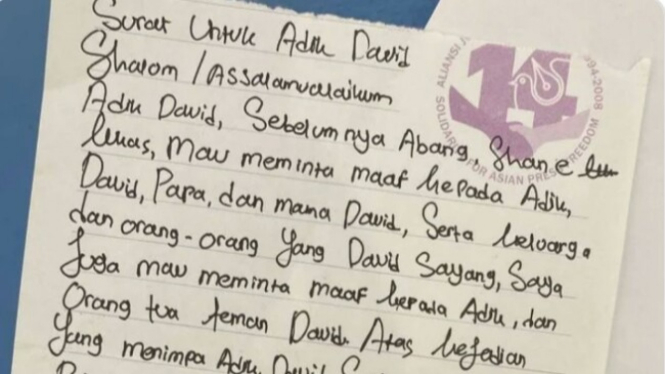 Surat Untuk Adik David
Shalom / Assalamualaikum
Adik David, Sebelumnya Abang, Shane
lukas, Mau meminta maaf kepada Adik,
David, Papa, dan mama David, Serta keluarga
dan orang-orang yang David Sayang, Saya
Juga mau meminta maaf kepada Adik, dan
Orang tua teman David. Atas kejadian
Yang menimpa Adik David
14
1994-2008
FOR ASIAN PRESS FREEDOM